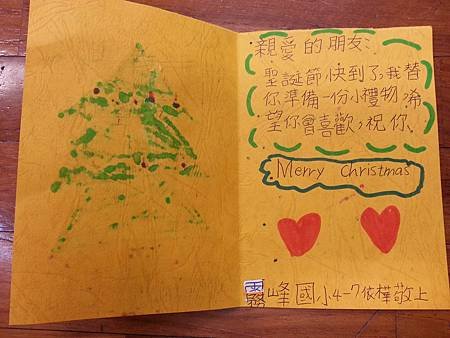 親愛的朋友:
聖誕節快到了,我替
你準備一份小禮物,希
望你會喜歡,祝你、
Merry Christmas
霧峰國小4-7依樺敬上